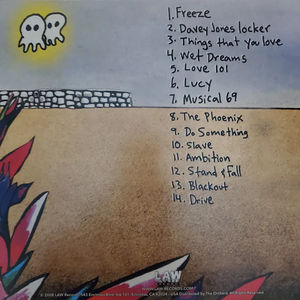 1. Freeze
2. Davey Jones locker
3. Things that you love
4. Wet Dreams
5. Love 101
6. Lucy
7. Musical 69
8. The Phoenix
9. Do Something
10. Slave
11. Ambition
12. Stand & Fall
13. Blackout
14. Drive
LAW
WWW.LAW-RECORDS.COM
© 2008 LAW Records